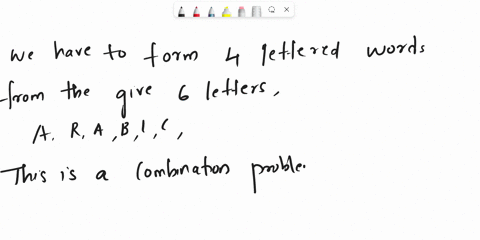 we have to form 4 lettered words
from the give 6 letters,
A. R, A, B, I, C,
This is a Combination proble.